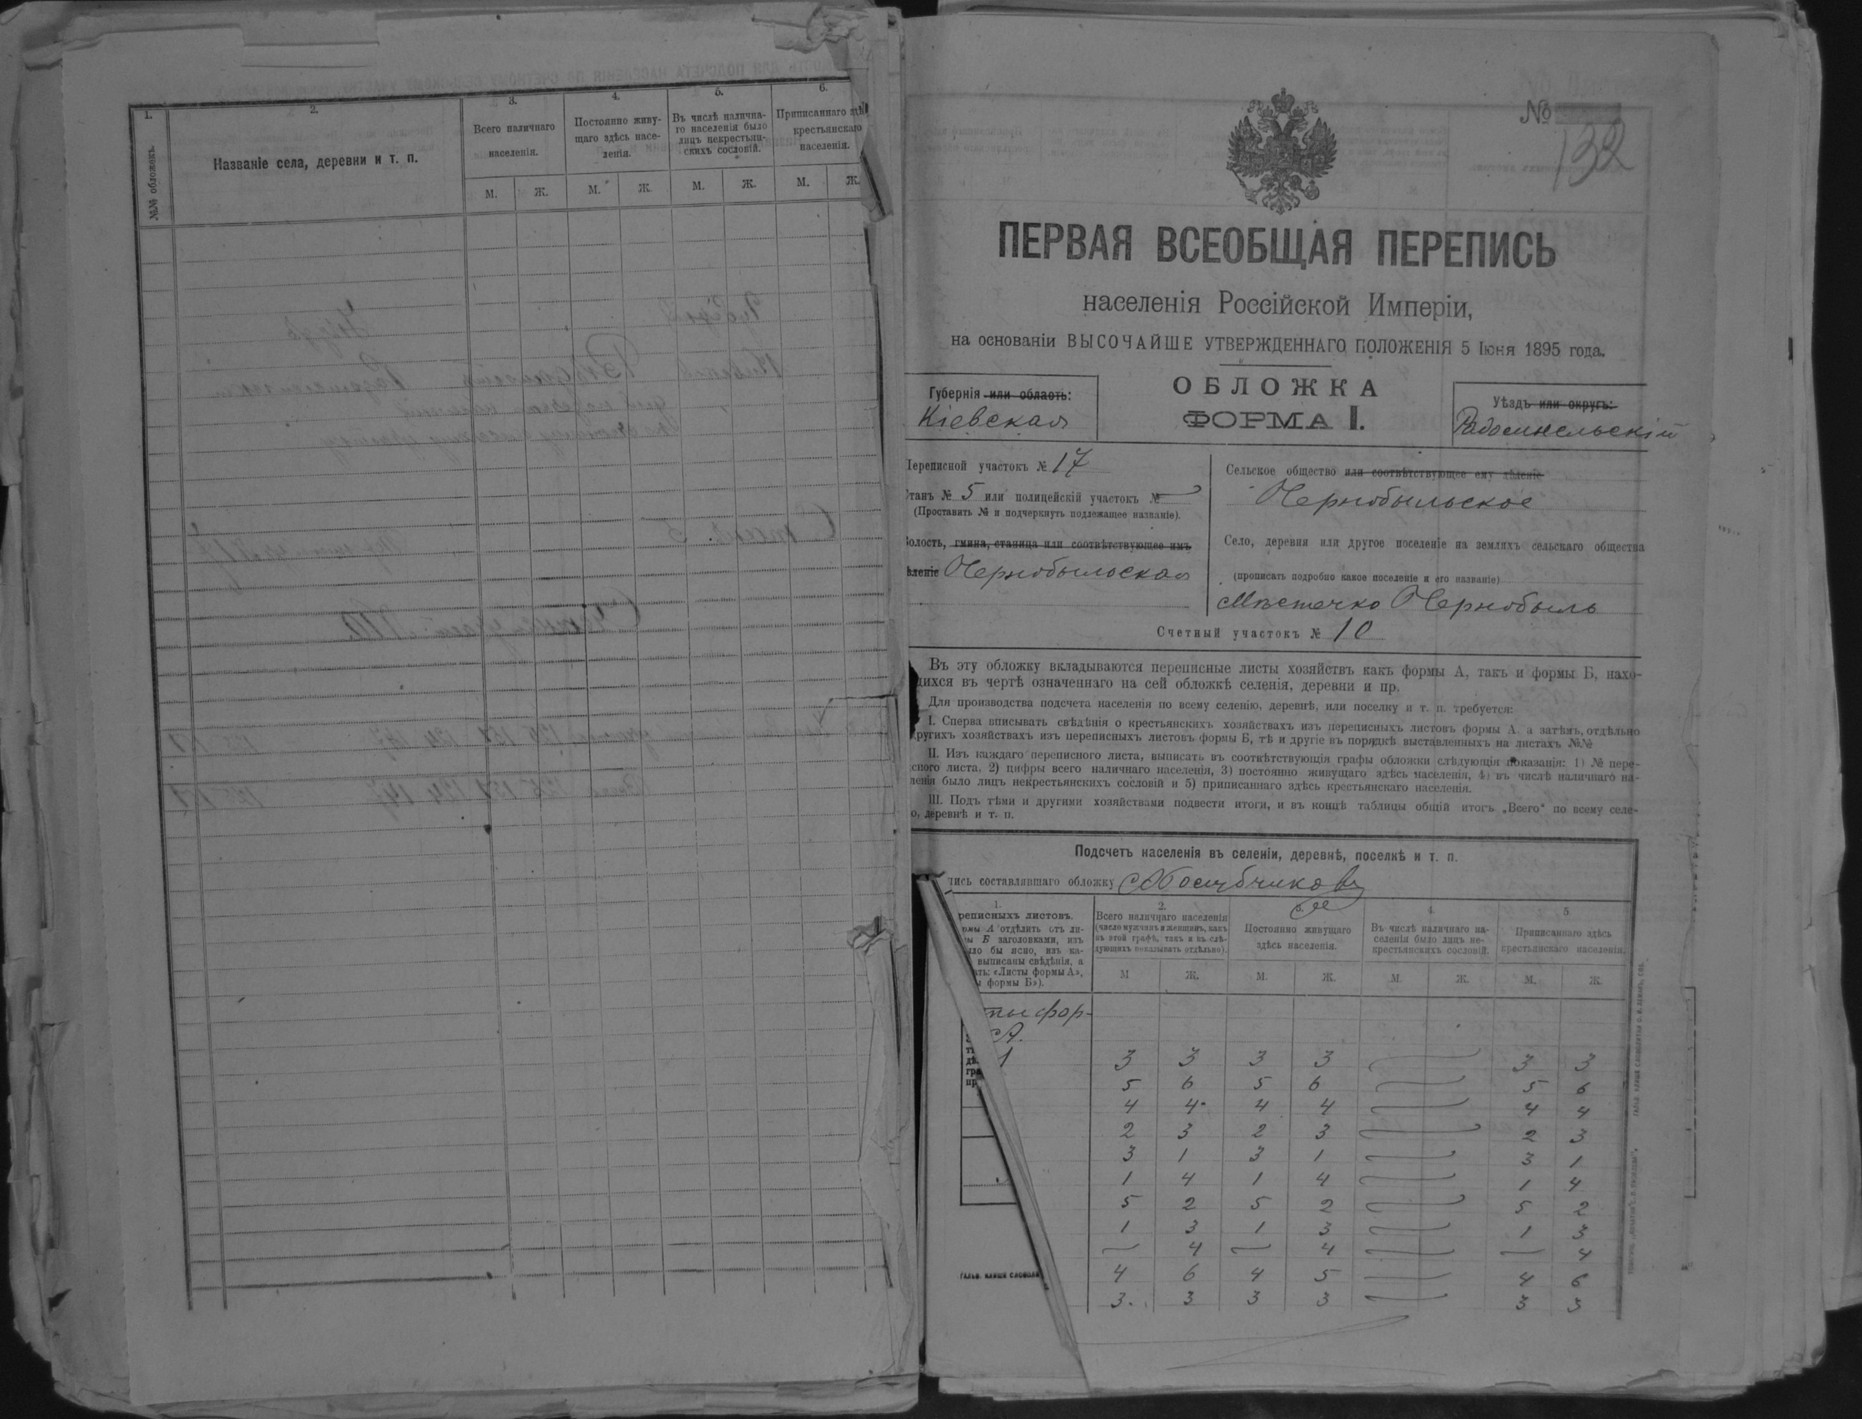 1.
2.
3.
4.
5.
6.
№№ обложекъ.
Названіе села, деревни и т. п.
Всего наличнаго
населенія.
Постоянно живу-
щаго здѣсь насе-
ленія.
Въ числѣ налична-
го населенія было
лицъ некрестьян-
скихъ сословій.
Приписаннаго здѣ
крестьянскаго
населенія.
М. Ж. М. Ж. М. Ж. М. Ж.
№
132
ПЕРВАЯ ВСЕОБЩАЯ ПЕРЕПИСЬ
населенія Россійской Имперіи,
на основаніи ВЫСОЧАЙШЕ УТВЕРЖДЕННАГО ПОЛОЖЕНІЯ 5 Іюня 1895 года.
ОБЛОЖКА
ФОРМА I.
Губернія или область:
Кіевская
Уѣздъ или округъ:
Радомысльскій
Переписной участокъ № 17
Станъ № 5 или полицейскій участокъ №
(Проставить № и подчеркнуть подлежащее названіе).
Волость, гмина, станица или соотвѣтствующее имъ
дѣленіе Чернобыльская
Сельское общество или соотвѣтствующее ему дѣленіе
Чернобыльское
Село, деревня или другое поселеніе на земляхъ сельскаго общества
(прописать подробно какое поселеніе и его названіе)
Мѣстечко Чернобыль
Счетный участокъ № 10
Въ эту обложку вкладываются переписные листы хозяйствъ какъ формы А, такъ и формы Б, нахо-
дихся въ чертѣ означеннаго на сей обложкѣ селенія, деревни и пр.
Для производства подсчета населенія по всему селенію, деревнѣ, или поселку и т. п. требуется:
I. Сперва вписывать свѣдѣнія о крестьянскихъ хозяйствахъ изъ переписныхъ листовъ формы А, а затѣмъ, отдѣльно
другихъ хозяйствахъ изъ переписныхъ листовъ формы Б, тѣ и другіе въ порядкѣ выставленныхъ на листахъ №№
II. Изъ каждаго переписного листа, выписать въ соотвѣтствующія графы обложки слѣдующія показанія: 1) № пере-
сного листа, 2) цифры всего наличнаго населенія, 3) постоянно живущаго здѣсь населенія, 4) въ числѣ наличнаго на-
ленія было лицъ некрестьянскихъ сословій и 5) приписаннаго здѣсь крестьянскаго населенія.
III. Подъ тѣми и другими хозяйствами подвести итоги, и въ концѣ таблицы общій итогъ „Всего“ по всему селе-
ю, деревнѣ и т. п.
Подсчетъ населенія въ селеніи, деревнѣ, поселкѣ и т. п.
пись составлявшаго обложку
1.
реписныхъ листовъ.
рмы А отдѣлить отъ ли-
ы Б заголовками, изъ
ло бы ясно, изъ ка-
выписаны свѣдѣнія, а
ать: «Листы формы А»,
ы формы Б»).
2.
Всего наличнаго населенія
(число мужчинъ и женщинъ, какъ
въ этой графѣ, такъ и въ слѣ-
дующихъ показывать отдѣльно).
Постоянно живущаго
здѣсь населенія.
4.
Въ числѣ наличнаго на-
селенія было лицъ не-
крестьянскихъ сословій.
5.
Приписаннаго здѣсь
крестьянскаго населенія.
М Ж. М. Ж. М. Ж. М. Ж.
ты фор-
А.
1 3 3 3 3 3 3
5 6 5 6 5 6
4 4 4 4 4 4
2 3 2 3 2 3
3 1 3 1 3 1
1 4 1 4 1 4
5 2 5 2 5 2
1 3 1 3 1 3
— 4 — 4 — 4
4 6 4 5 4 6
3 3 3 3 3 3